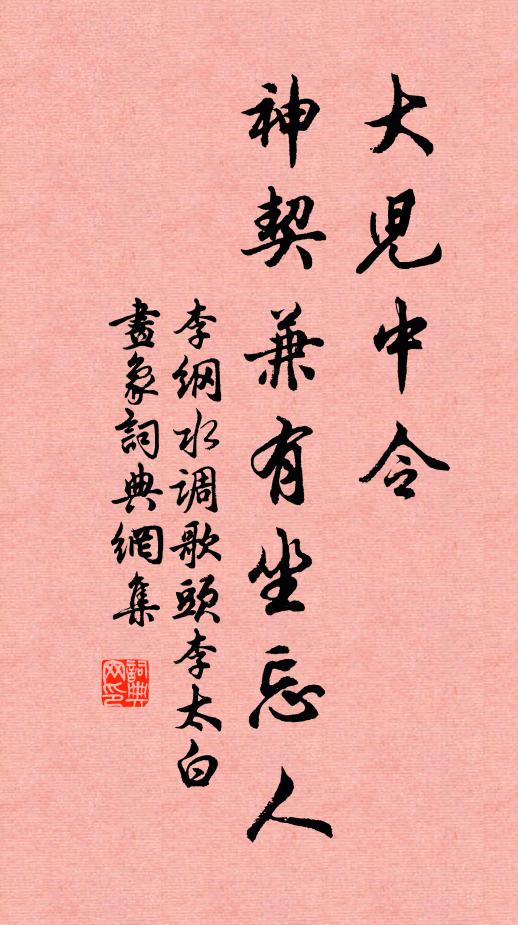 大児中令
神契兼有坐忘人
李綱水调歌頭李太白
畫象詞典網集
詞典网印